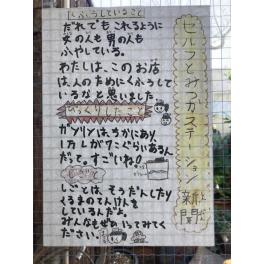 セルフとみつかステーション新聞
くふうしていること
だれでもこれるように
女の人も男の人も
ふやしている。
わたしは、このお店
は、人のためにくふうして
いるなと思いました
びっくりしたこと
ガソリンは、ちかにあり、
いるん
だって。すごいね!
しごとは、そうだんしたり
くるまのてんけんを
しているんだよ。
みんなもぜひいってみてく
ださい。